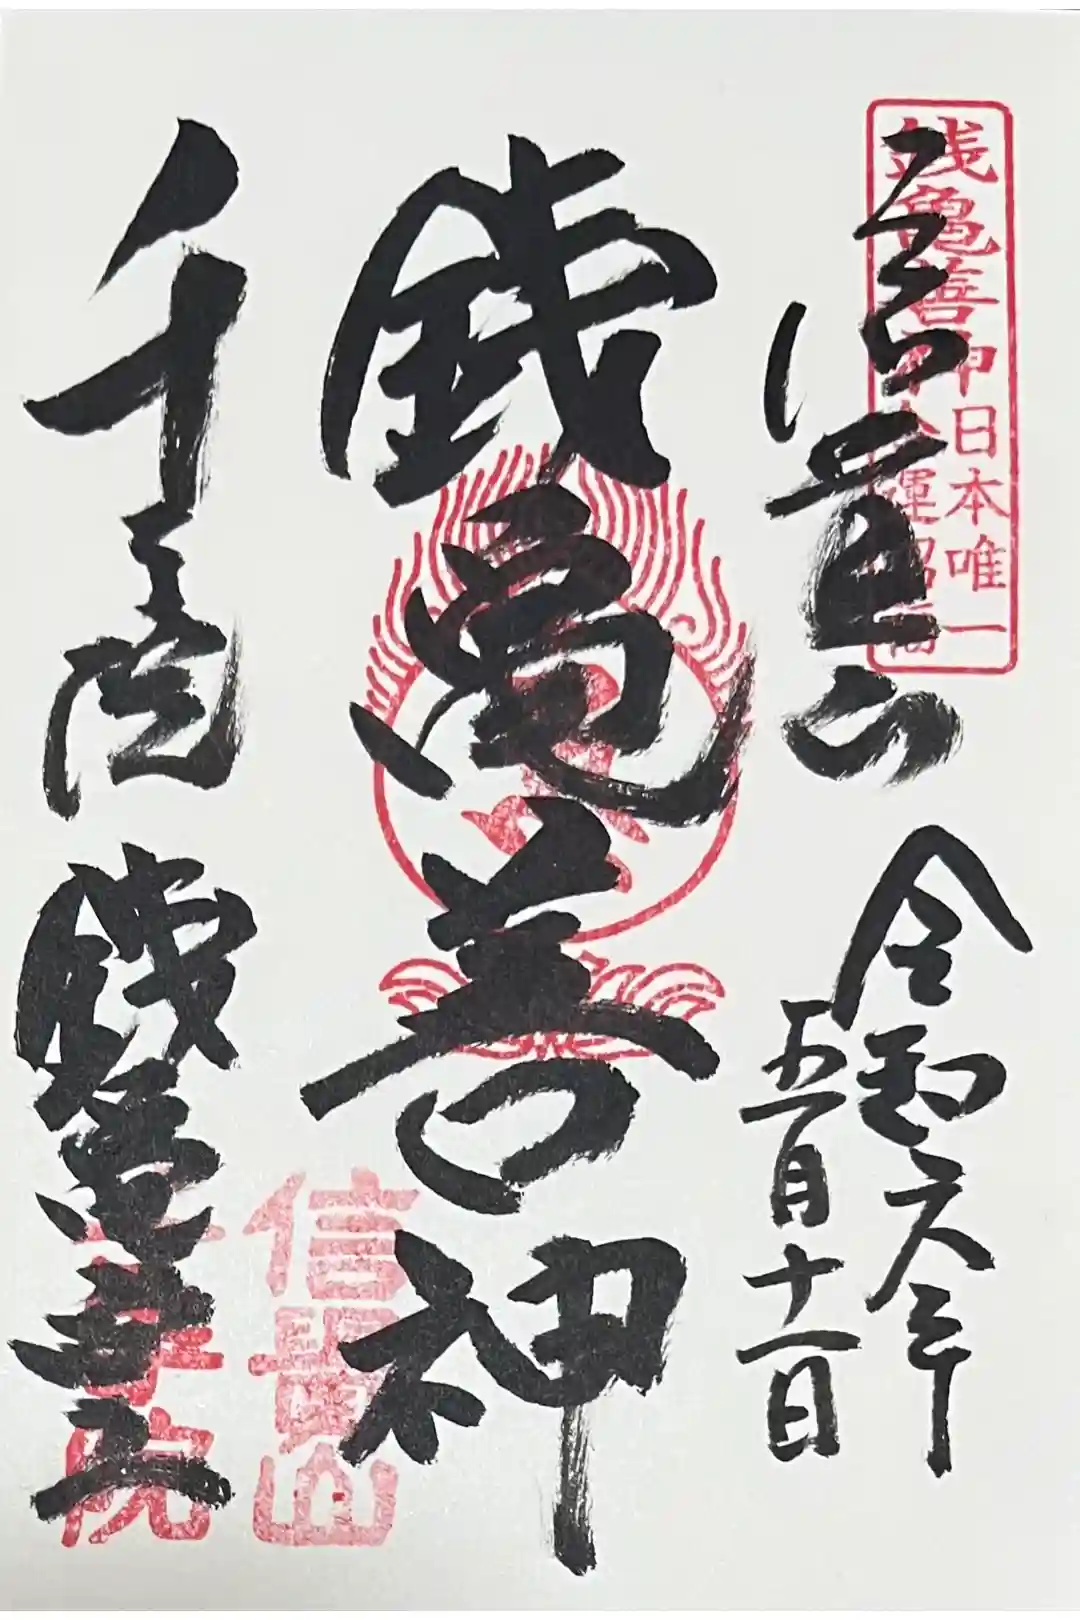 銭亀善神日本唯一
金運招福
信貴山
令和六年
五月十一日
銭亀善神
千手院
銭亀堂
信貴山
千手院